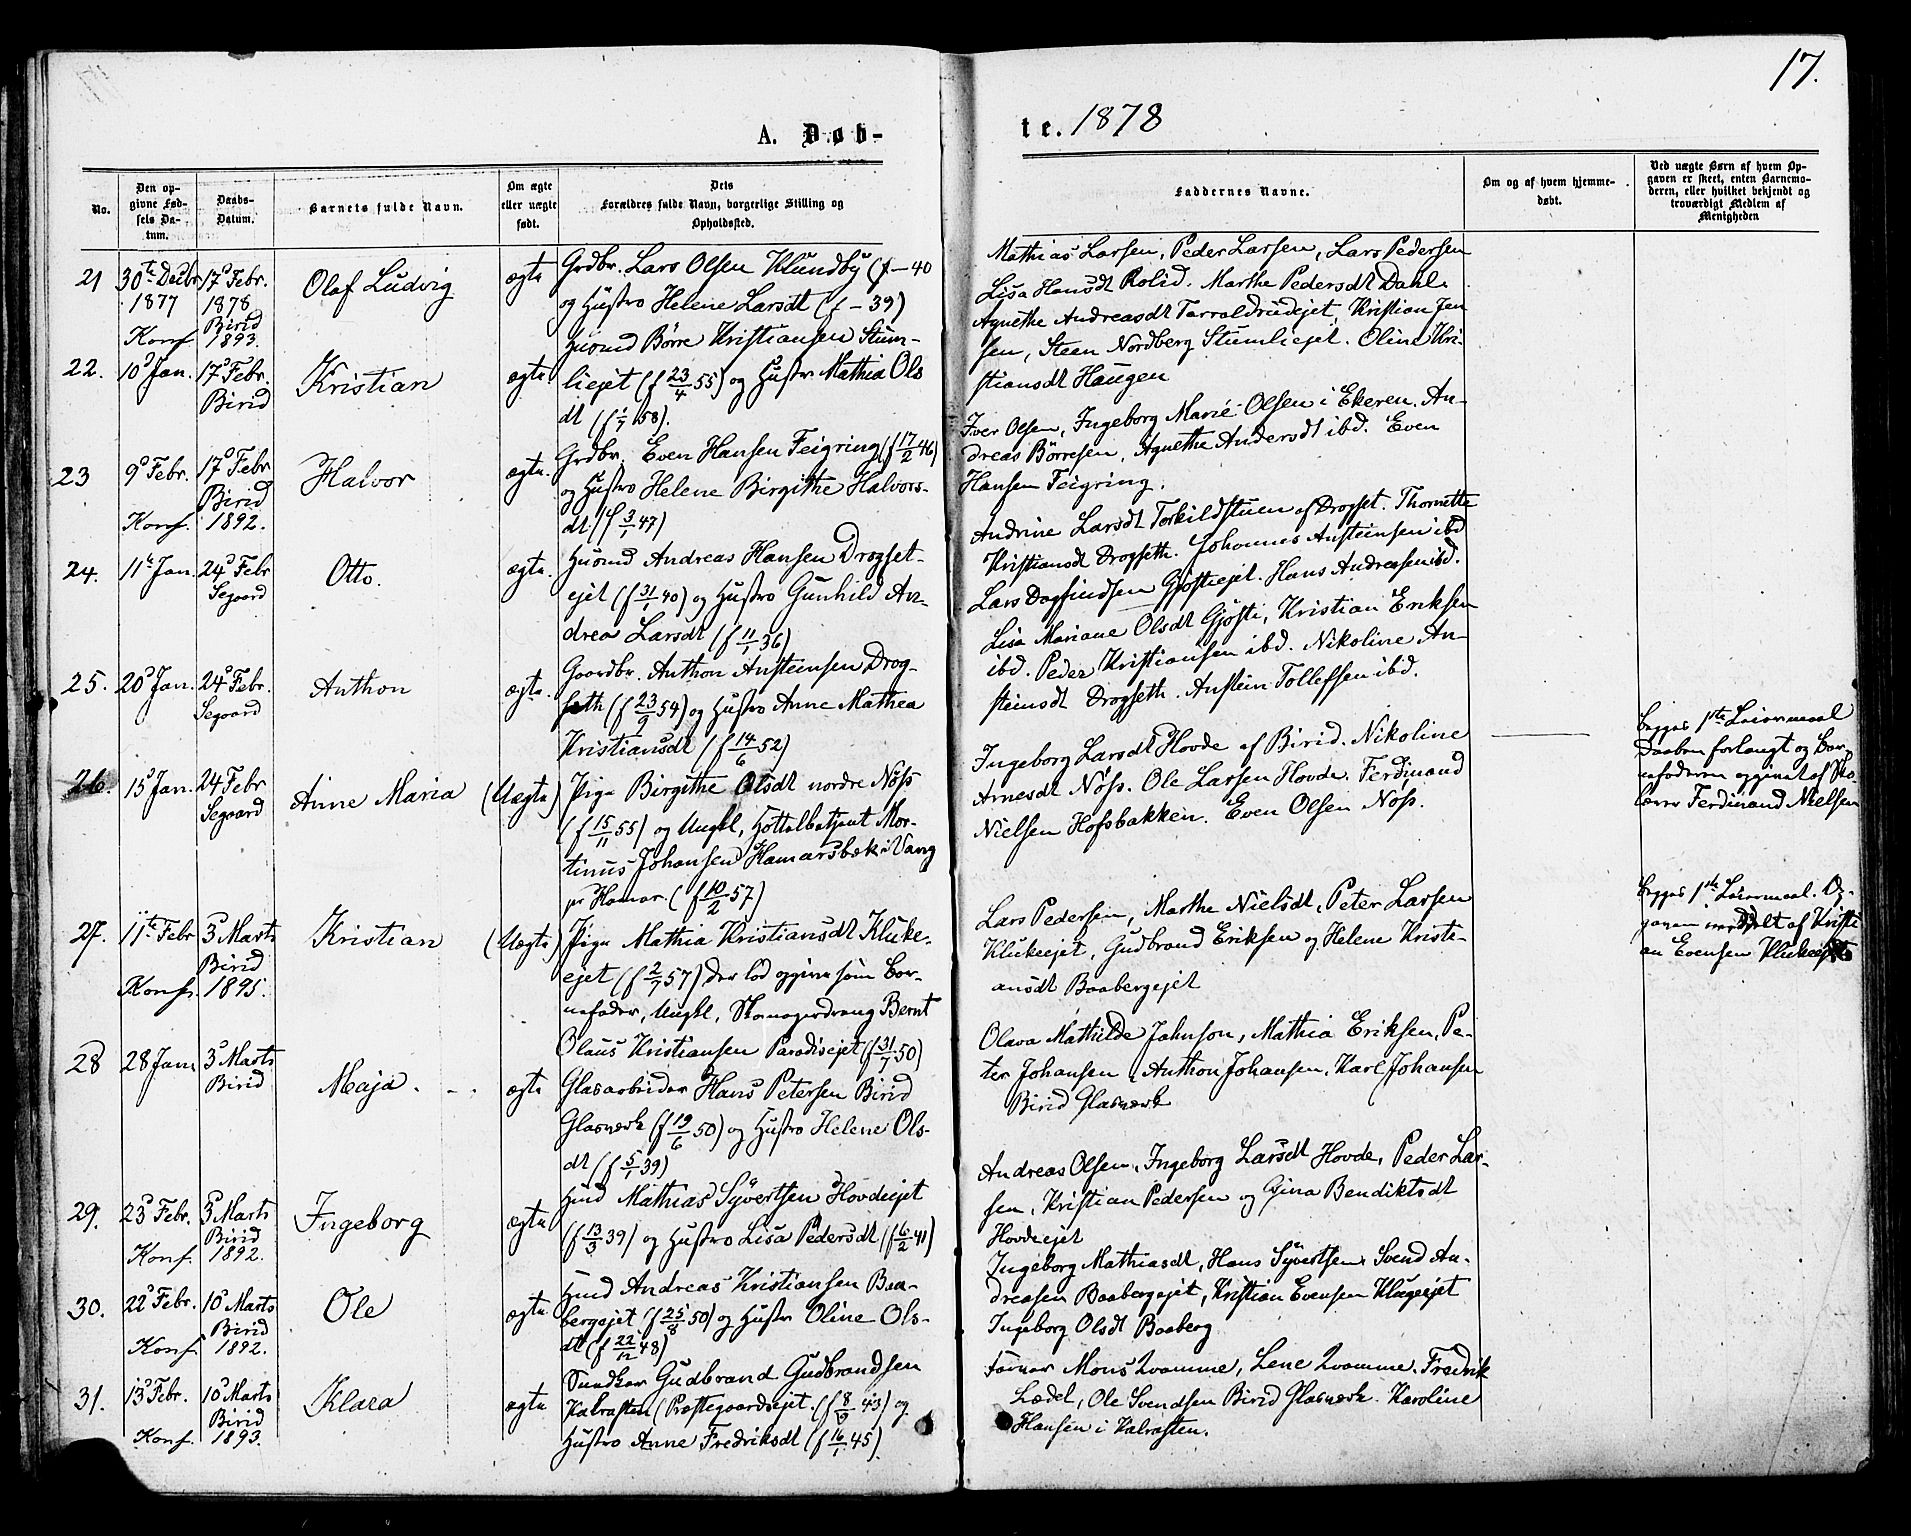 17.
A. Døb-
te. 1878
No.
Den op-
givne Fød-
sels Da-
tum.
Daabs-
Datum.
Barnets fulde Navn.
Om ægte
eller uægte
født.
Dets
Forældres fulde Navn, borgerlige Stilling og
Opholdssted.
Faddernes Navne.
Om og af hvem hjemme-
døbt.
Ved uægte Børn af hvem Op-
gaven er skeet, enten Barnemo-
deren, eller hvilket bekjendt og
troværdigt Medlem af
Menigheden
21
30te Decbr
1877
Konf.
17d Febr.
1878
Birid
1893.
Olaf Ludvig
ægte
Grdbr. Lars Olsen Klundby (f – 40
og Hustro Helene Larsdt (f – 39)
Mathias Larsen, Peder Larsen, Lars Pedersen
Lisa Hansdt Rolid. Marthe Pedersdt Dahl.
22.
10d Jan.
17d Febr.
Birid
Kristian
ægte
Husmd Börre Kristiansen Stum-
liejet (f 23/4 55) og Hustr Mathia Ols
dt (f 1/7 58).
Agnethe Andreasdt Tarraldrudejet, Kristian Jen
sen, Steen Nordberg Stumliejet. Olina Kri-
stiansdt Haugen
23
9d Febr.
Konf.
17d Febr
Birid
1892.
Halvor
ægte.
Grdbr. Even Hansen Feigring (f 17/2 46)
og Hustro Helene Birgithe Halvors-
dt. (f 3/1 47)
Iver Olsen, Ingeborg Marie Olsen i Ekeren. An-
dreas Börresen, Agnethe Andersdt ibd. Even
Hansen Feigring.
24.
11te Jan.
24d Febr
Segaard
Otto.
ægte.
Husmd Andreas Hansen Drogset-
ejet (f 31/1 40) og Hustro Gunhild An-
drea Larsdt (f 11/1 36)
Andrine Larsdt Torkildstuen af Drogset. Thornette
Kristiansdt Drogseth. Johannes Ansteinsen ibd
Lars Dagfindsen Gjöstiejet. Hans Andreasen ibd.
25.
20d Jan.
24d Febr.
Segaard
Anthon
ægte.
Gaardbr. Anthon Ansteinsen Drog-
seth (f 23/9 54) og Hustro Anne Mathea
Kristiansdt (f 14/6 52)
Lisa Mariane Olsdt Gjösti, Kristian Eriksen
ibd. Peder Kristiansen ibd. Nikoline An-
steinsdt Drogseth. Anstein Tollefsen ibd.
26.
15d Jan.
24 Febr
Segaard
Anne Maria
(Uægte)
Pige Birgithe Olsdt nordre Nöss
(f 15/11 55) og Ungkl, Hottelbetjent Mar-
tinus Johansen Hamarsbæk i Vang
pr Hamar (f 10/2 57)
Ingeborg Larsdt Hovde af Birid. Nikoline
Arnesdt Nöss. Ole Larsen Hovde. Ferdinand
Nielsen Hofsbakken. Even Olsen Nöss.
Begges 1ste Leiermaal
Daaben forlangt og Bar-
nefaderen opgivet af Sko-
lærer Ferdinand Nielsen
27.
11te Febr
Konf.
3d Marts
Birid
1895.
Kristian
(Uægte)
Pige Mathia Kristiansdt Kluke-
ejet (f 2/7 57) der lod opgive som Bar-
nefader, Ungkl, Skomagerdreng Bernt
Olaus Kristiansen Paradisejet (f 31/7 50)
Lars Pedersen, Marthe Nielsdt, Peter Larsen
Klukeejet, Gudbrand Eriksen og Helene Kristi-
ansdt Baabergejet
Begges 1ste Leiermaal. Op-
gaven meddelt af Kristi
an Evensen Klukeejet
28
28 Jan.
3d Marts
Birid
Maja.
ægte
Glasarbeider Hans Petersen Birid
Glasværk (f 19/6 50) og Hustro Helene Ols-
dt (f 5/1 39)
Olava Mathilde Jahnson, Mathia Eriksen, Pe-
ter Johansen, Anthon Johansen, Karl Johansen
Birid Glasværk
29.
23d Febr.
Konf.
3d Marts
Birid
1892.
Ingeborg
ægte
Husmd Mathias Syvertsen Hovdeejet
(f 13/3 39) og Hustro Lisa Pedersdt (f 6/2 41)
Andreas Olsen, Ingeborg Larsdt Hovde, Peder Lar-
sen, Kristian Pedersen og Gina Bendiktsdt
Hovdeejet
30.
22d Febr.
Konf.
10d Marts
Birid
1892.
Ole
ægte
Husmd Andreas Kristiansen Baa-
bergejet (f 25/8 50) og Hustr Oline Ols-
dt (f 22/12 48)
Ingeborg Mathiasdt, Hans Syvertsen. Svend An-
dreasen Baabergejet, Kristian Evensen Klugeejet
Ingeborg Olsdt Baaberg
31.
13d Febr.
Konf.
10d Marts
Birid
1893.
Klara
ægte
Gudbrand Gudbrandsen
Kalrasten (Præstegaardsejet. (f 8/9 43) og
Hustro Anne Fredriksdt (f 16/1 45).
Farver Mons Kvamme, Lene Kvamme. Fredrik
Lædel, Ole Svendsen Birid Glasværk. Karoline
Hansen i Kalrasten.